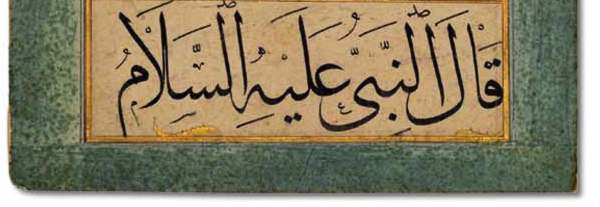 قَالَ النَّبِيُّ عَلَيْهِ السَّلَامُ